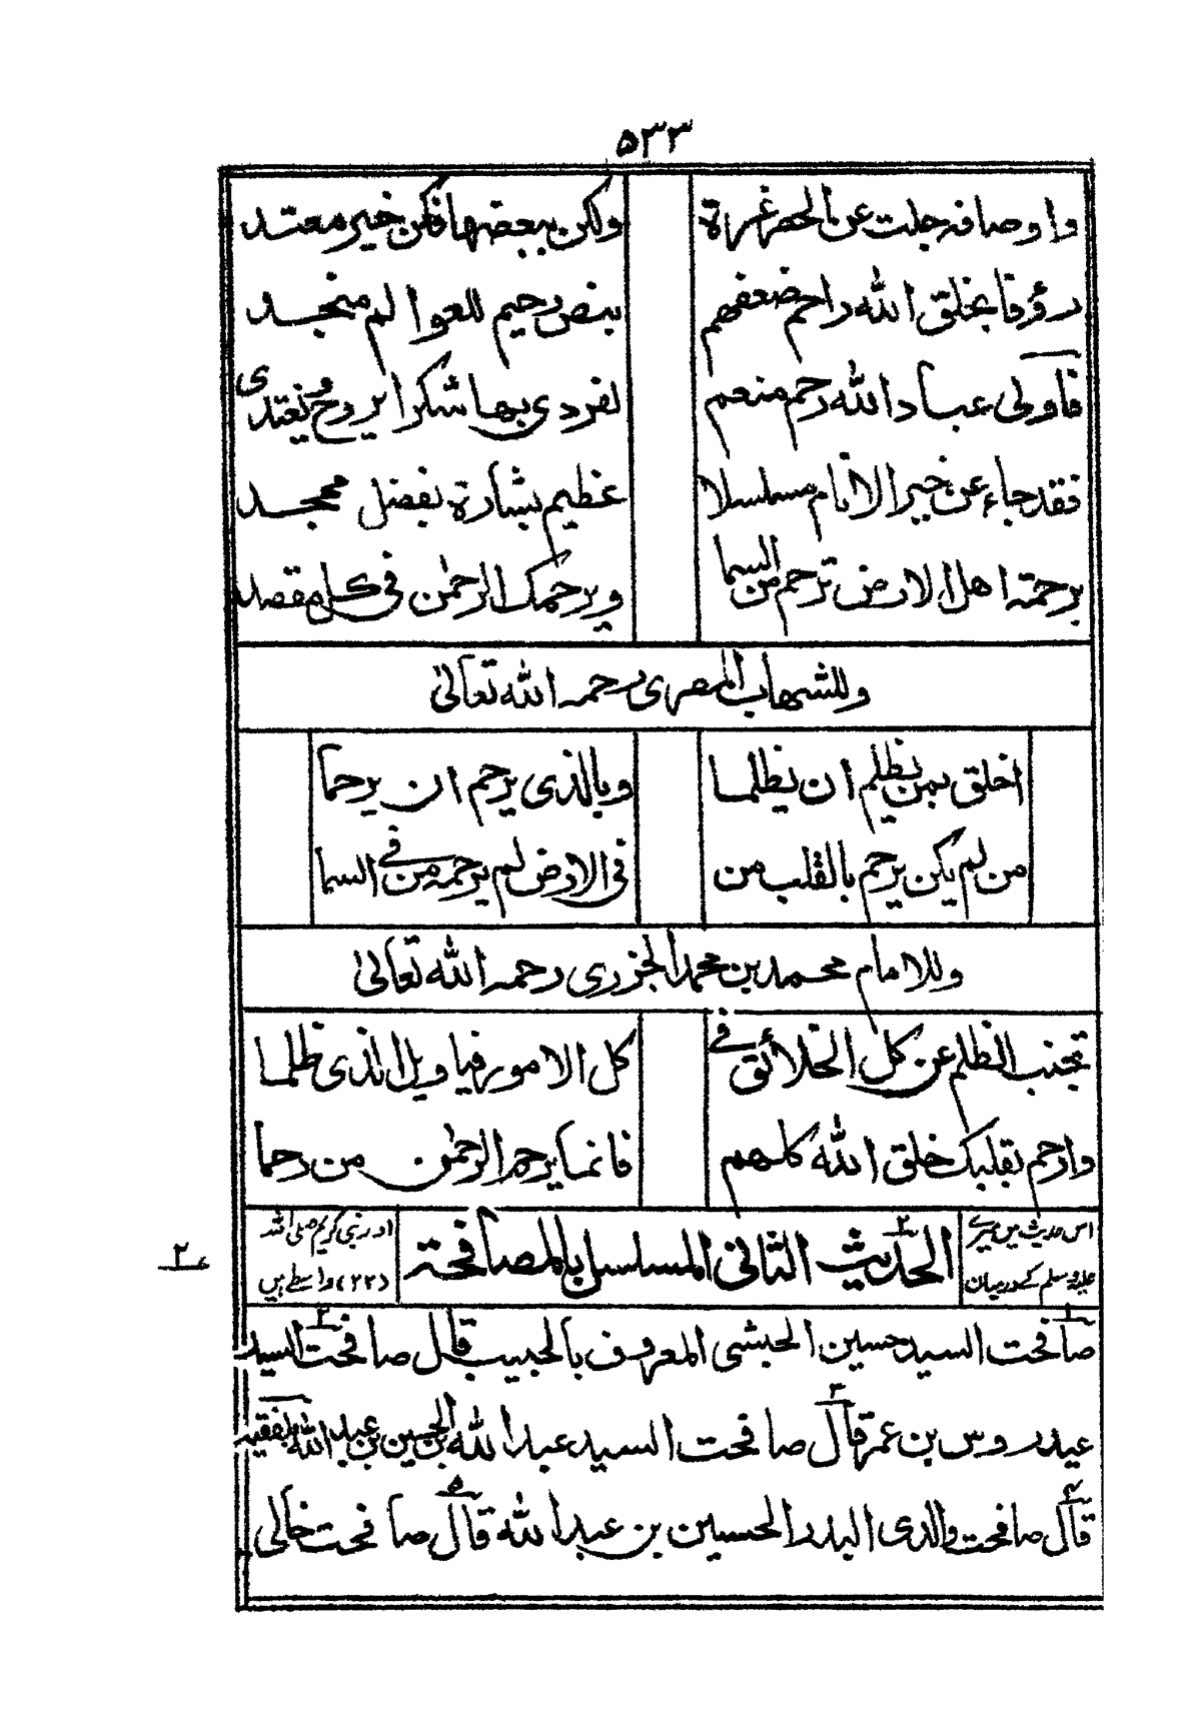 ۵۳۳
واوصافہ جلت عن الحصر غرۃ ولکن ببعضہا فکن خیر معتد
رؤفا بخلق اللہ راحم ضعفہم بنص رحیم للعوالم منجد
فاولی عباد اللہ رحم منعم لفردی بہا شکرا یروح ویغتدی
فقد جاء عن خیر الانام مسلسلا عظیم بشارۃ بفضل ممجد
برحمۃ اھل الارض ترحم من السما ویرحمک الرحمٰن فی کل مقصد
وللشہاب المصری رحمہ اللہ تعالیٰ
اخلق بمن یظلم ان یظلما وبالذی یرحم ان یرحما
من لم یکن یرحم بالقلب من فی الارض لم یرحمہ من فی السما
وللامام محمد بن محمد الجزری رحمہ اللہ تعالیٰ
تجنب الظلم عن کل الخلائق فی کل الامور فیا ویل الذی ظلما
وارحم بقلبک خلق اللہ کلہم فانما یرحم الرحمٰن من رحما
اس حدیث میں میرے اور نبی کریم صلی اللہ
علیہ وسلم کے درمیان (۲۲) واسطے ہیں
۲ الحدیث الثانی المسلسل بالمصافحۃ
۲
صافحت السید حسین الحبشی المعروف بالحبیب قال صافحت السید
عیدروس بن عمر قال صافحت السید عبد اللہ بن الحسین بن عبد اللہ بلفقیہ
قال صافحت والدی البدر الحسین بن عبد اللہ قال صافحت خالی